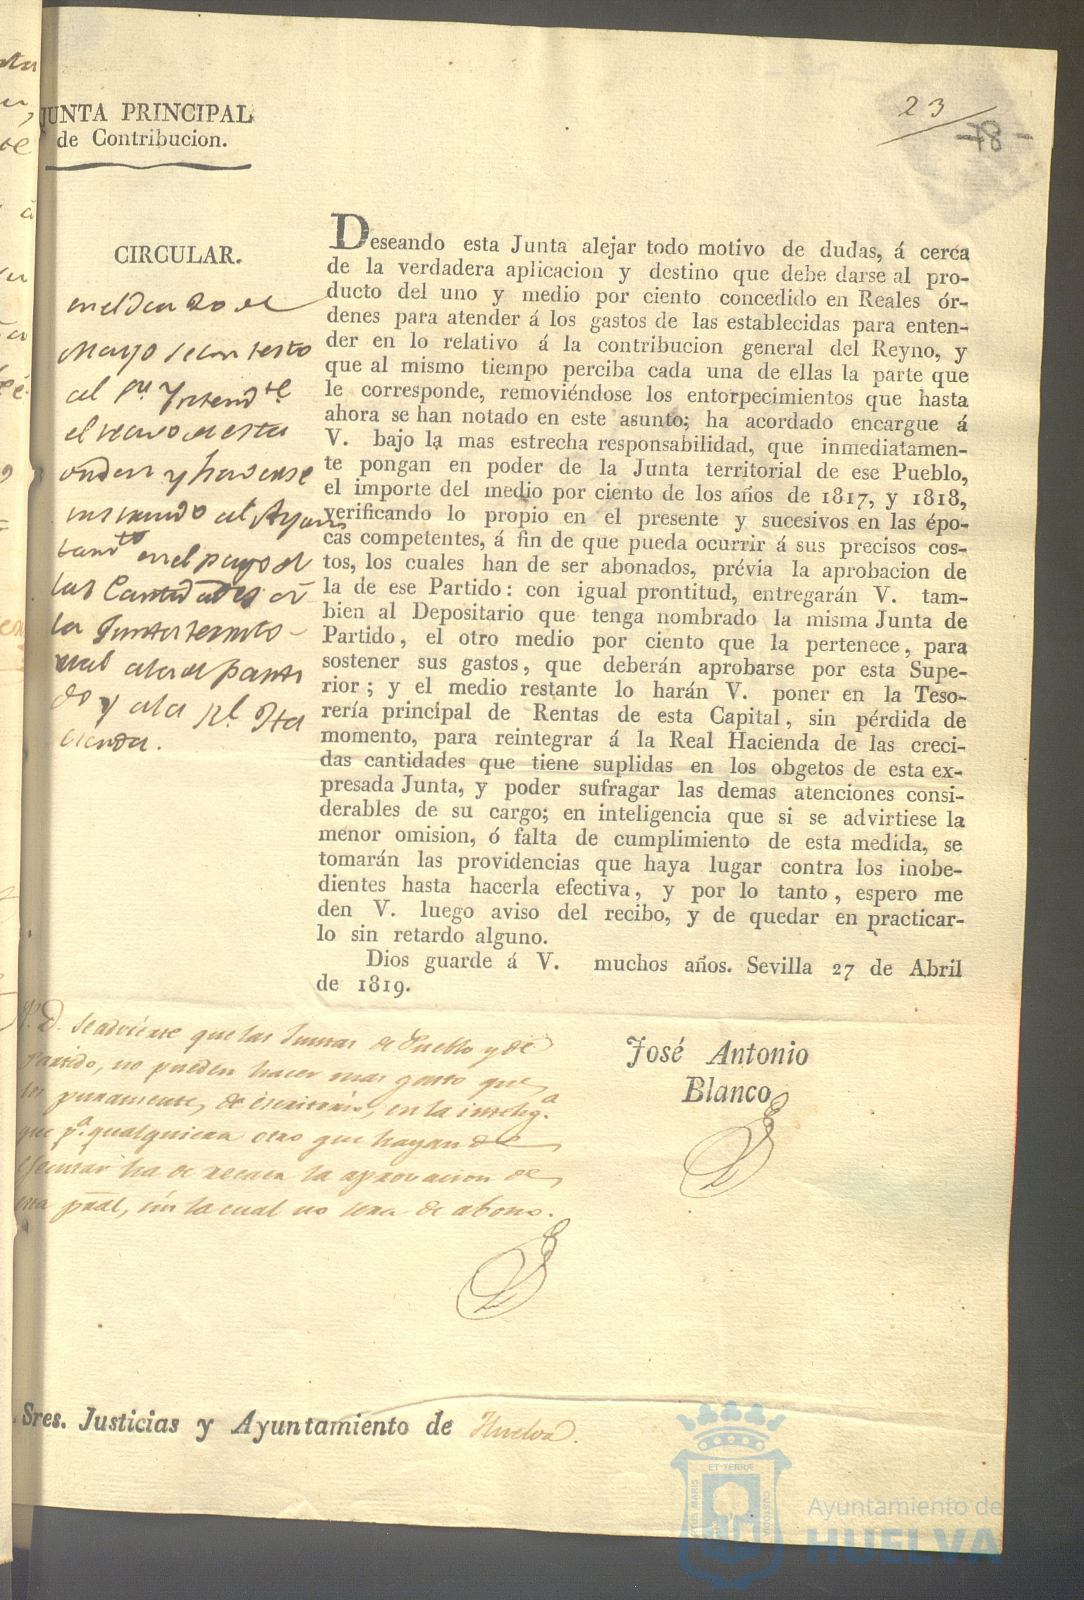 JUNTA PRINCIPAL
de Contribucion.
23
-87-
CIRCULAR.
Deseando esta Junta alejar todo motivo de dudas, á cerca
de la verdadera aplicacion y destino que debe darse al pro-
ducto del uno y medio por ciento concedido en Reales ór-
denes para atender á los gastos de las establecidas para enten-
der en lo relativo á la contribucion general del Reyno, y
que al mismo tiempo perciba cada una de ellas la parte que
le corresponde, removiéndose los entorpecimientos que hasta
ahora se han notado en este asunto; ha acordado encargue á
V. bajo la mas estrecha responsabilidad, que inmediatamen-
te pongan en poder de la Junta territorial de ese Pueblo,
el importe del medio por ciento de los años de 1817, y 1818,
verificando lo propio en el presente y sucesivos en las épo-
cas competentes, á fin de que pueda ocurrir á sus precisos cos-
tos, los cuales han de ser abonados, prévia la aprobacion de
la de ese Partido: con igual prontitud, entregarán V. tam-
bien al Depositario que tenga nombrado la misma Junta de
Partido, el otro medio por ciento que la pertenece, para
sostener sus gastos, que deberán aprobarse por esta Supe-
rior; y el medio restante lo harán V. poner en la Teso-
rería principal de Rentas de esta Capital, sin pérdida de
momento, para reintegrar á la Real Hacienda de las creci-
das cantidades que tiene suplidas en los obgetos de esta ex-
presada Junta, y poder sufragar las demas atenciones consi-
derables de su cargo; en inteligencia que si se advirtiese la
menor omision, ó falta de cumplimiento de esta medida, se
tomarán las providencias que haya lugar contra los inobe-
dientes hasta hacerla efectiva, y por lo tanto, espero me
den V. luego aviso del recibo, y de quedar en practicar-
lo sin retardo alguno.
Dios guarde á V. muchos años. Sevilla 27 de Abril
de 1819.
José Antonio
Blanco
en el dia 20 de
Mayo se contesto
al Sr. Yntendte
el recivo de esta
orden y
al Ayun
tamto en el pago de
las Cantidades á
la Junta territo-
rial a la del parti
do y a la Rl. Ha
cienda.
P. D. Se advierte que las Juntas de Pueblo y de
Partido, no pueden hacer mas gasto que
los puramente de escritorio, en la intelig.a
que p.a qualquiera otro que hayan de
efectuar ha de recaer la aprovacion de
esta pral, sin la cual no sera de abono.
Sres. Justicias y Ayuntamiento de Huelva.
ET TERRÆ
PORTUS MARIS
CUSTODIA
Ayuntamiento de
HUELVA